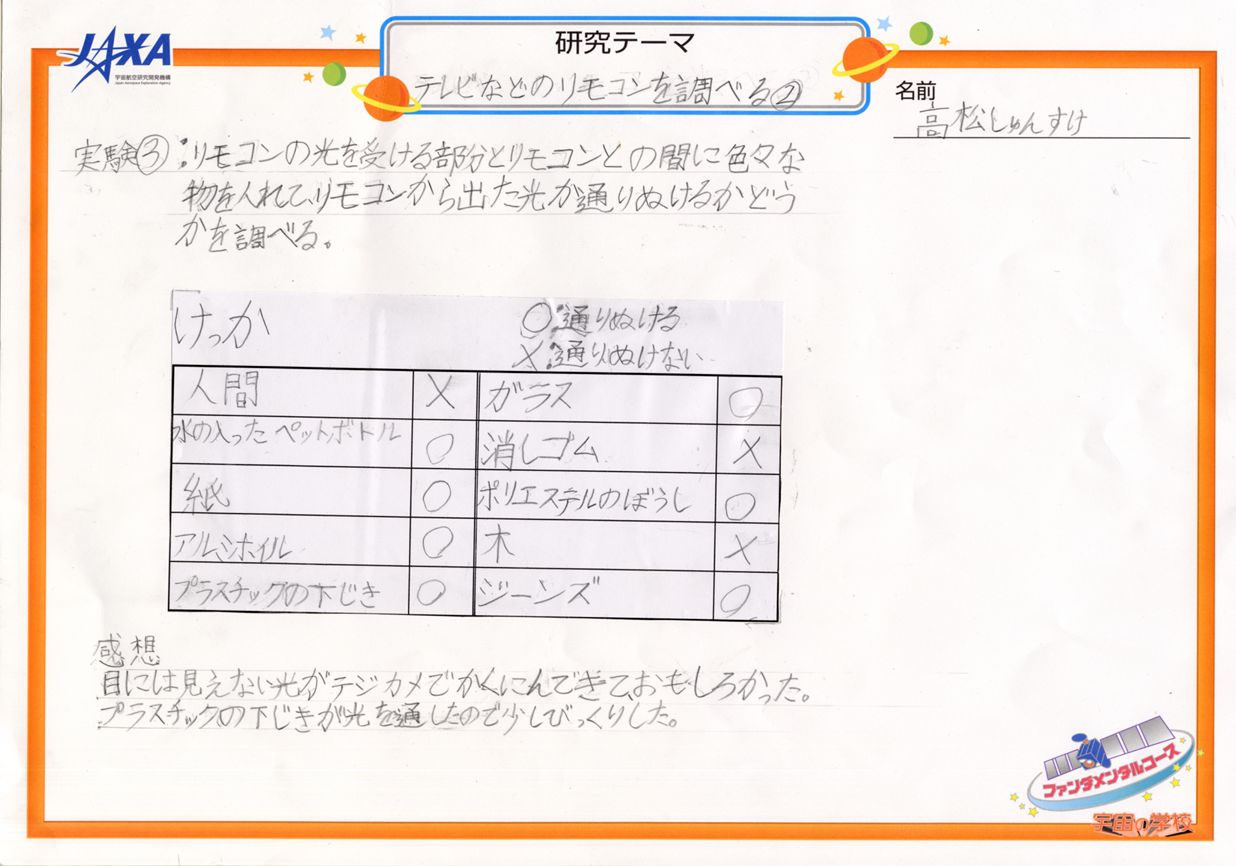 JAXA
宇宙航空研究開発機構
Japan Aerospace Exploration Agency
研究テーマ
テレビなどのリモコンを調べる②
名前
高松しゅんすけ
実験③:リモコンの光を受ける部分とリモコンとの間に色々な
物を入れて、リモコンから出た光が通りぬけるかどう
かを調べる。
けっか
○:通りぬける
×:通りぬけない
人間 × ガラス ○
水の入ったペットボトル ○ 消しゴム ×
紙 ○ ポリエステルのぼうし ○
アルミホイル ○ 木 ×
プラスチックの下じき ○ ジーンズ ○
感想
目には見えない光がデジカメでかくにんできて、おもしろかった。
プラスチックの下じきが光を通したので少しびっくりした。
ファンダメンタルコース
宇宙の学校